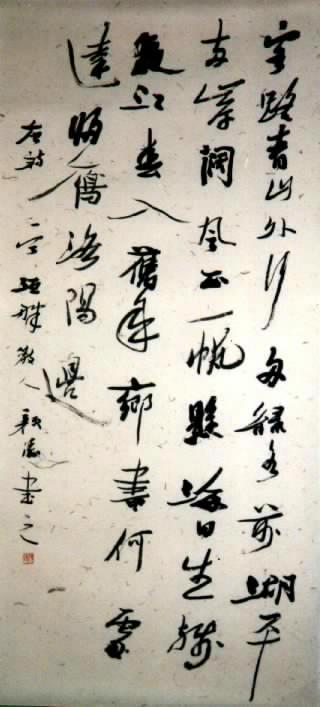 客路青山外行舟綠水前潮平
兩岸闊風正一帆懸海日生殘
夜江春入舊年鄉書何處
達歸雁洛陽邊
右詩一 散人 書之